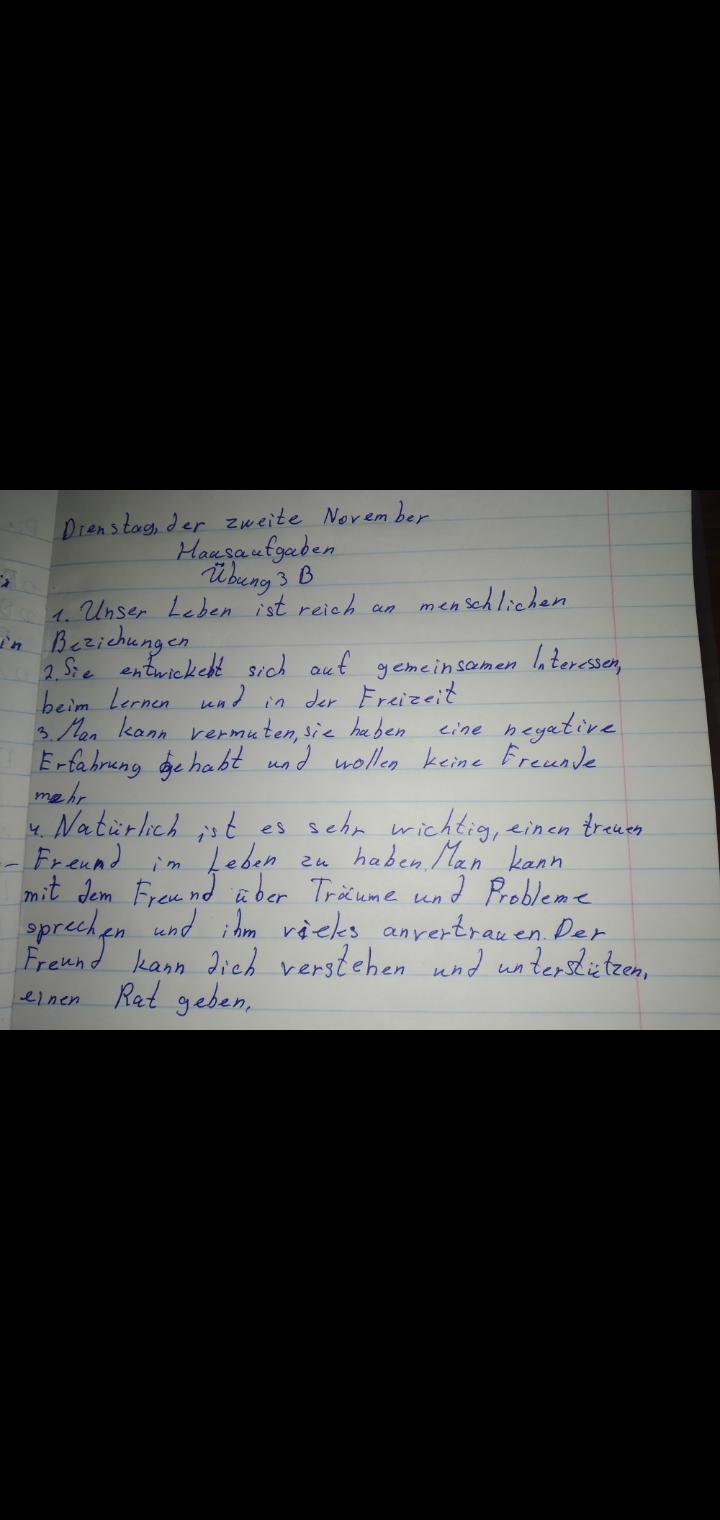 Dienstag, der zweite November
Hausaufgaben
Übung 3 B
1. Unser Leben ist reich an menschlichen
in Bezichungen
2. Sie entwickelt sich auf gemeinsamen Interessen,
beim Lernen und in der Freizeit
3. Man kann vermuten, sie haben eine negative
Erfahrung gehabt und wollen keine Freunde
mehr
4. Natürlich ist es sehr wichtig, einen treuen
– Freund im Leben zu haben. Man kann
mit dem Freund über Träume und Probleme
sprechen und ihm vieles anvertrauen. Der
Freund kann dich verstehen und unterstützen,
einen Rat geben,